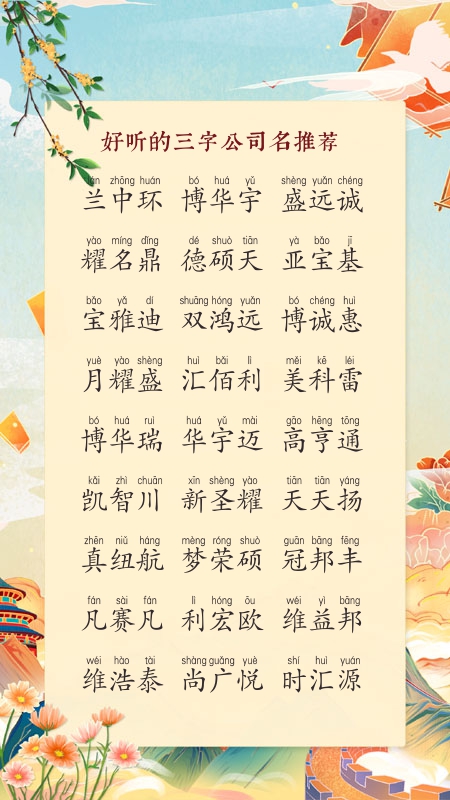 好听的三字公司名推荐
lán zhōng huán bó huá yǔ shèng yuǎn chéng
兰中环 博华宇 盛远诚
yào míng dǐng dé shuò tiān yà bǎo jī
耀名鼎 德硕天 亚宝基
bǎo yǎ dí shuāng hóng yuǎn bó chéng huì
宝雅迪 双鸿远 博诚惠
yuè yào shèng huì bǎi lì měi kē léi
月耀盛 汇佰利 美科雷
bó huá ruì huá yǔ mài gāo hēng tōng
博华瑞 华宇迈 高亨通
kǎi zhì chuān xīn shèng yào tiān tiān yáng
凯智川 新圣耀 天天扬
zhēn niǔ háng mèng róng shuò guān bāng fēng
真纽航 梦荣硕 冠邦丰
fán sài fán lì hóng ōu wéi yì bāng
凡赛凡 利宏欧 维益邦
wéi hào tài shàng guǎng yuè shí huì yuán
维浩泰 尚广悦 时汇源